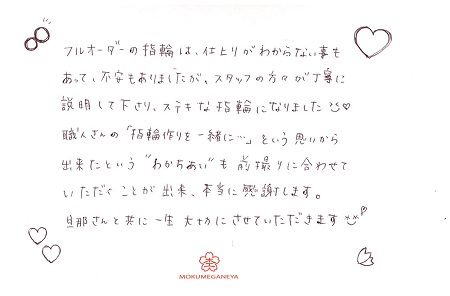 フルオーダーの指輪は、仕上りがわからない事も
あって、不安もありましたが、スタッフの方々が丁寧に
説明して下さり、ステキな指輪になりました
職人さんの「指輪作りを一緒に…」という思いから
出来たという"わかちあい"も前撮りに合わせて
いただくことが出来、本当に感謝します。
旦那さんと共に一生大切にさせていただきます
MOKUMEGANEYA